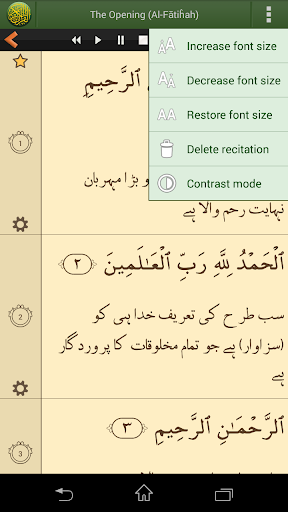 The Opening (Al-Fātiĥah)
Increase font size
Decrease font size
Restore font size
Delete recitation
Contrast mode
1
ٱلرَّحِيمِ
و بڑا مہربان
نہایت رحم والا ہے
2
ٱلْحَمْدُ لِلَّهِ رَبِّ ٱلْعَـٰلَمِينَ ﴿٢﴾
سب طرح کی تعریف خدا ہی کو
(سزاوار) ہے جو تمام مخلوقات کا پروردگار
ہے
3
ٱلرَّحْمَـٰنِ ٱلرَّحِيمِ ﴿٣﴾